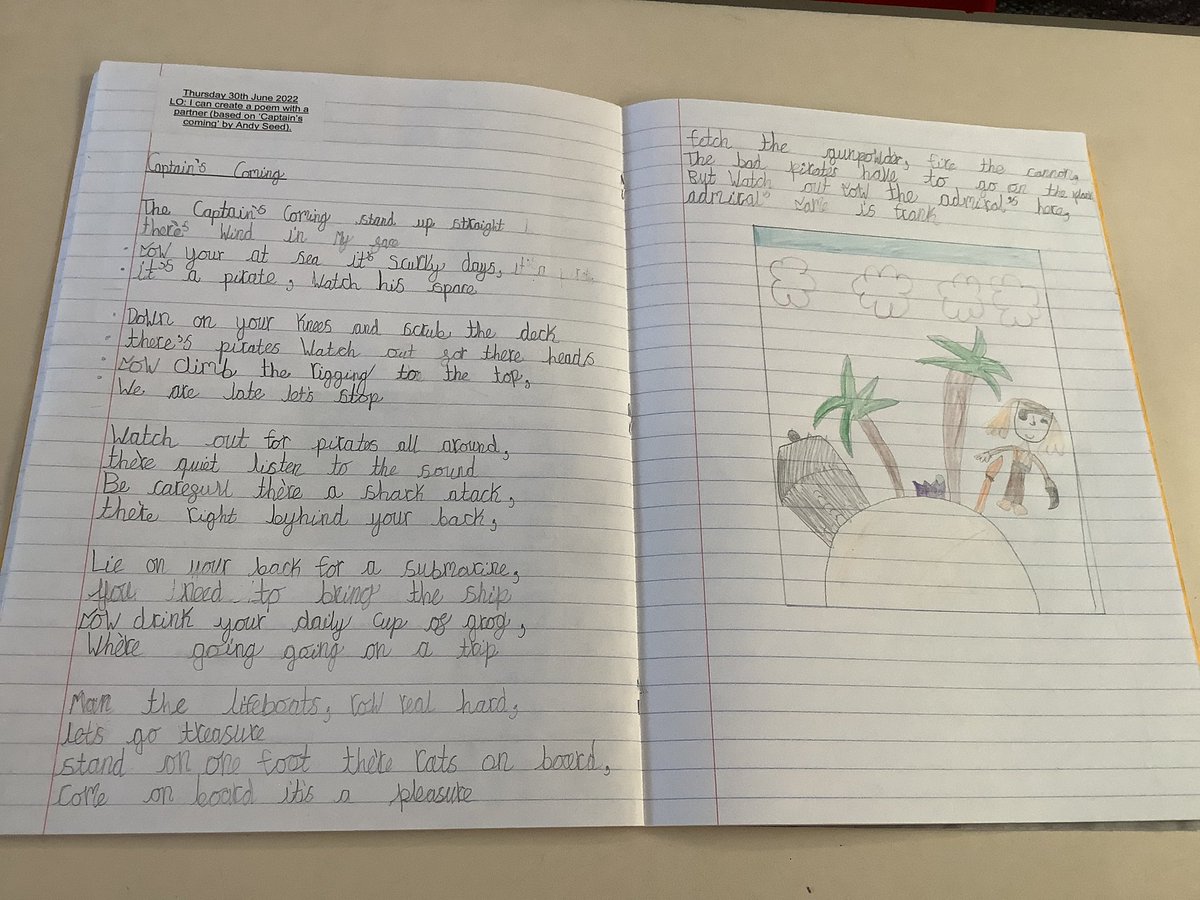 Thursday 30th June 2022
LO: I can create a poem with a
partner (based on 'Captain's
coming' by Andy Seed).
Captain's Coming
The Captain's Coming stand up straight
there's wind in my face
now your at sea it's scurvy days,
it's a pirate, watch his space
Down on your knees and scrub the deck
there's pirates watch out for there heads
now climb the rigging to the top,
We are late let's stop
Watch out for pirates all around,
there quiet listen to the sound
Be carefurl there a shark atack,
there right byhind your back,
Lie on your back for a submarine,
You need to bring the ship
now drink your daily cup of grog,
Where going going on a trip
Man the lifeboats, row real hard,
lets go treasure
stand on one foot there rats on board,
Come on board it's a pleasure
fetch the gunpowder, fire the cannon,
The bad pirates have to go on the plank
But watch out now the admiral's here,
admiral's name is frank